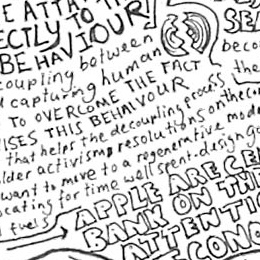 E ATTA
ECTLY TO TH
BEHAVIOUR!
SEA
oupling between
beco
d capturing human
the
TO OVERCOME THE FACT
ISES THIS BEHAIVOUR
that helps the decoupling process
lder activism, resolutions on the con
want to move to a regenerative mode
ocating for time well spent-design go
d fuels
APPLE ARE CE
BANK ON TH
ATTENTI
ECONO